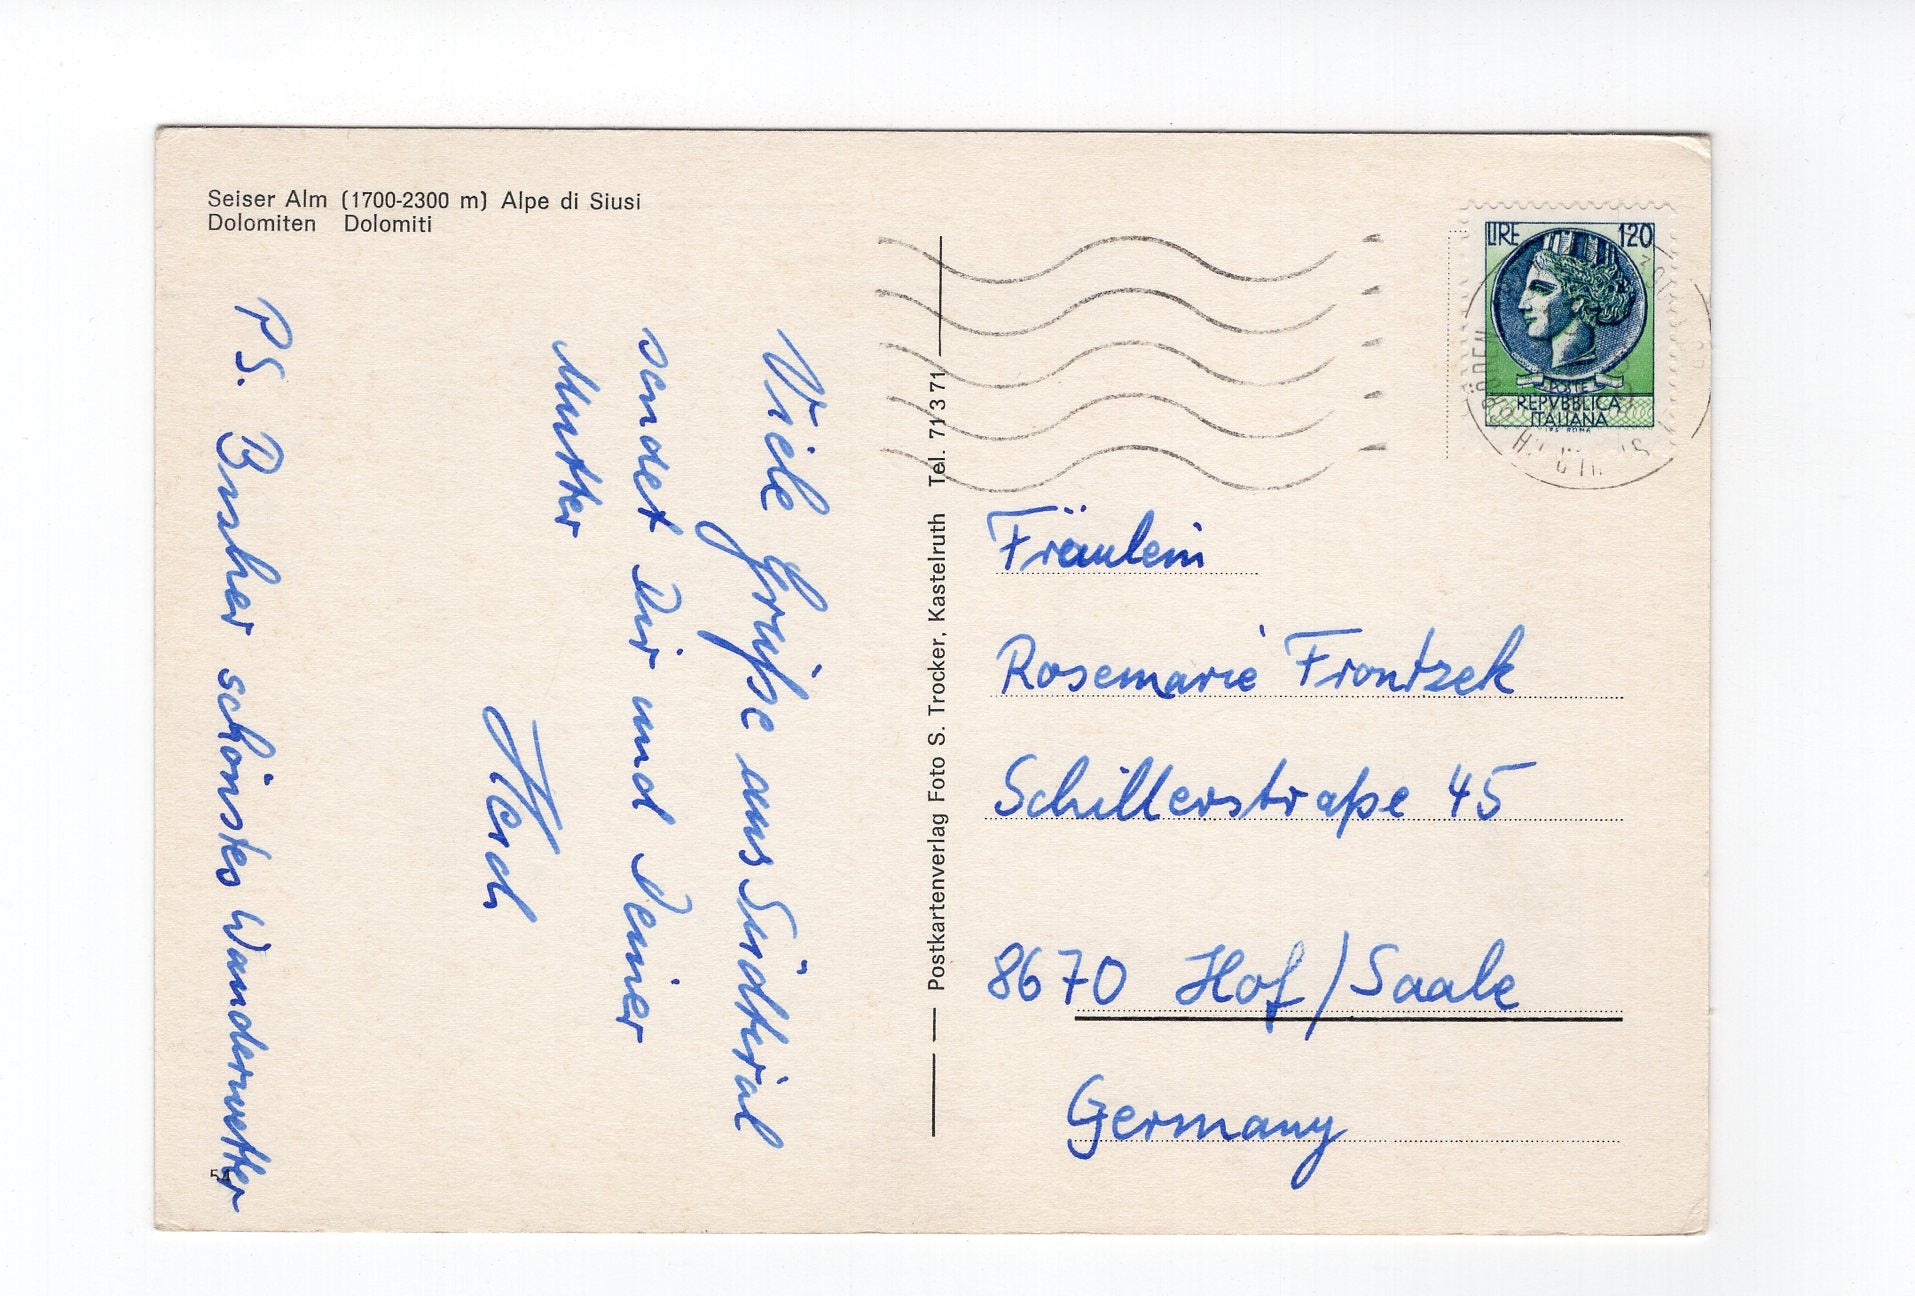 Seiser Alm (1700-2300 m) Alpe di Siusi
Dolomiten Dolomiti
Viele Grüße aus Südtirol
sendet Dir und Deiner
Mutter
Herd
P.S. Bisher schönstes Wanderwetter
54
Postkartenverlag Foto S. Trocker, Kastelruth Tel. 71 3 71
LIRE 120
POSTE
REPVBBLICA
ITALIANA
I.P.S. ROMA
Fräulein
Rosemarie Frontzek
Schillerstraße 45
8670 Hof/Saale
Germany